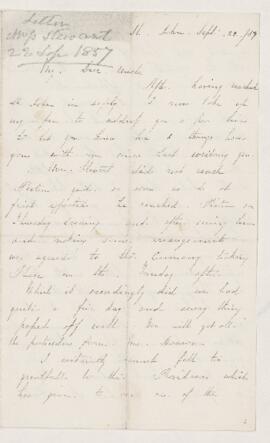 Letter
Mrs Stewart
22 Sep 1857
St. John Sept. 22 /57
My Dear Uncle
After having reached
St John in safety I now take up
my pen to address you a few lines
to let you know how things have
gone with me since last writing you
Mr. Stewart did not reach
Pictou quite as soon as he at
first expected he reached Pictou on
Thursday evening and after seeing him
and making some arrangements
we agreed to the Ceremony taking
place on the Tuesday after.
Which it accordingly did we had
quite a fine day and every thing
passed off well. You will get all
the particulars from
I certainly cannot fail to
gratefull to the Providence which
has given to me one of the